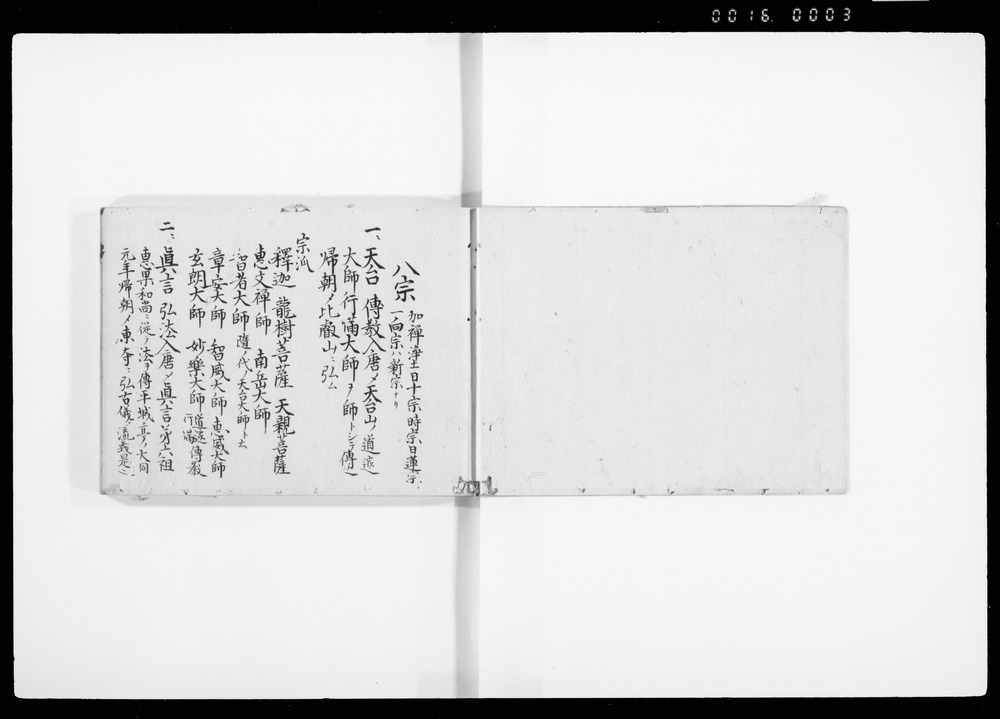 0016. 0003
八宗 加禅浄土曰十宗時宗日蓮宗、
一向宗ハ新宗ナリ
一、天台 傳教入唐メ天台山ノ道邃
大師行滿大師ヲ師トシテ傳之
帰朝メ比叡山ニ弘ム
宗派
釋迦 龍樹菩薩 天親菩薩
惠文禅師 南岳大師
智者大師 隨ノ代ノ天台大師ト云
章安大師 智威大師 惠威大師
玄朗大師 妙樂大師 道邃 行滿 傳教
二、眞言 弘法入唐メ眞言第六祖
惠果和尚ニ従テ法ヲ傳平城 大同
元年帰朝メ東寺ニ弘古儀ノ流義是